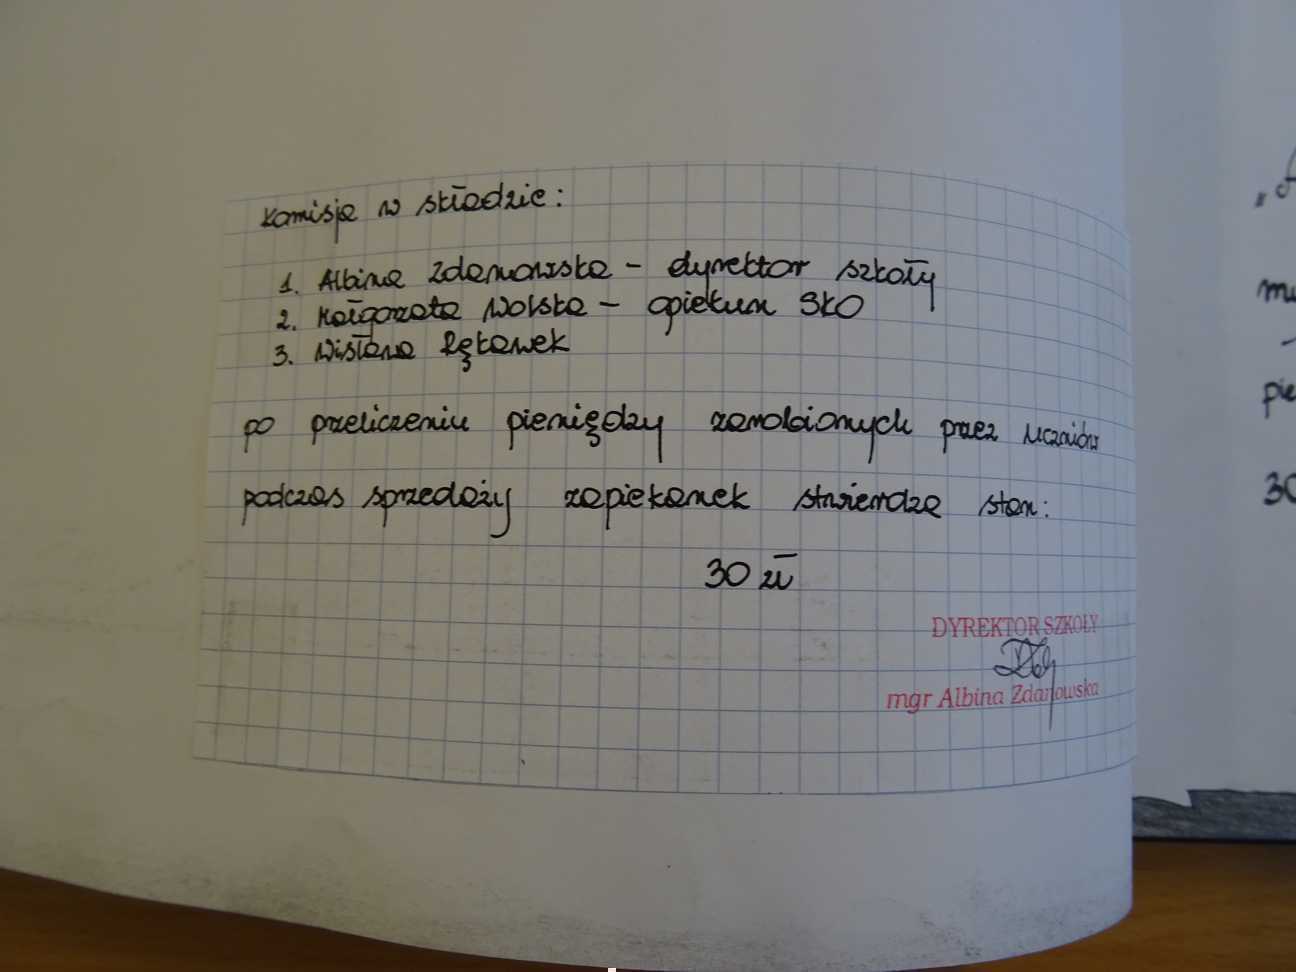 Komisja w składzie:
1. Albina Zdanowska - dyrektor szkoły
2. Małgorzata Wolska - opiekun SKO
3. Wisława Łękawek
po przeliczeniu pieniędzy zarobionych przez uczniów
podczas sprzedaży zapiekanek stwierdza stan:
30 zł
DYREKTOR SZKOŁY
mgr Albina Zdanowska
pie
30